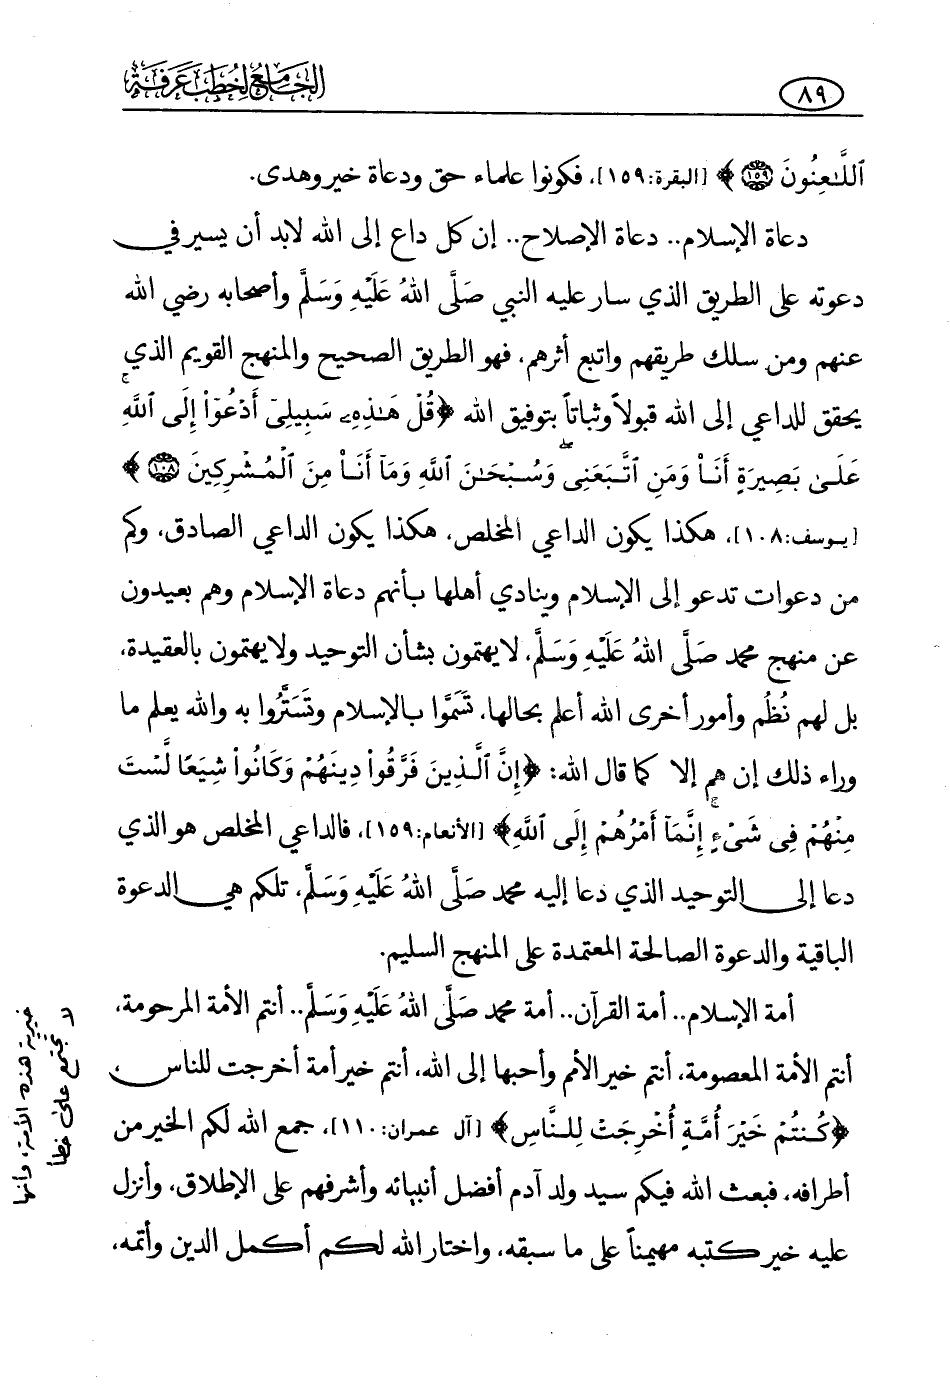 الجامع لخطب عرفة
٨٩
ٱللَّـٰعِنُونَ ١٥٩ ﴾ [البقرة:١٥٩]، فكونوا علماء حق ودعاة خير وهدى.
دعاة الإسلام.. دعاة الإصلاح.. إن كل داع إلى الله لابد أن يسير في
دعوته على الطريق الذي سار عليه النبي صَلَّى اللهُ عَلَيْهِ وَسَلَّم وأصحابه رضي الله
عنهم ومن سلك طريقهم واتبع أثرهم، فهو الطريق الصحيح والمنهج القويم الذي
يحقق للداعي إلى الله قبولاً وثباتاً بتوفيق الله ﴿قُلْ هَـٰذِهِۦ سَبِيلِىٓ أَدْعُوٓا۟ إِلَى ٱللَّهِ ۚ
عَلَىٰ بَصِيرَةٍ أَنَا۠ وَمَنِ ٱتَّبَعَنِى ۖ وَسُبْحَـٰنَ ٱللَّهِ وَمَآ أَنَا۠ مِنَ ٱلْمُشْرِكِينَ ١٠٨ ﴾
[يوسف:١٠٨]، هكذا يكون الداعي المخلص، هكذا يكون الداعي الصادق، وكم
من دعوات تدعو إلى الإسلام وينادي أهلها بأنهم دعاة الإسلام وهم بعيدون
عن منهج محمد صَلَّى اللهُ عَلَيْهِ وَسَلَّم، لا يهتمون بشأن التوحيد ولا يهتمون بالعقيدة،
بل لهم نُظُم وأمور أخرى الله أعلم بحالها، تَسَمَّوا بالإسلام وتَسَتَّرُوا به والله يعلم ما
وراء ذلك إن هم إلا كما قال الله: ﴿إِنَّ ٱلَّذِينَ فَرَّقُوا۟ دِينَهُمْ وَكَانُوا۟ شِيَعًا لَّسْتَ
مِنْهُمْ فِى شَىْءٍ ۚ إِنَّمَآ أَمْرُهُمْ إِلَى ٱللَّهِ﴾ [الأنعام:١٥٩]، فالداعي المخلص هو الذي
دعا إلى التوحيد الذي دعا إليه محمد صَلَّى اللهُ عَلَيْهِ وَسَلَّم، تلكم هي الدعوة
الباقية والدعوة الصالحة المعتمدة على المنهج السليم.
أمة الإسلام.. أمة القرآن.. أمة محمد صَلَّى اللهُ عَلَيْهِ وَسَلَّم.. أنتم الأمة المرحومة،
أنتم الأمة المعصومة، أنتم خير الأمم وأحبها إلى الله، أنتم خير أمة أخرجت للناس،
﴿كُنتُمْ خَيْرَ أُمَّةٍ أُخْرِجَتْ لِلنَّاسِ﴾ [آل عمران:١١٠]، جمع الله لكم الخير من
أطرافه، فبعث الله فيكم سيد ولد آدم أفضل أنبيائه وأشرفهم على الإطلاق، وأنزل
عليه خير كتبه مهيمناً على ما سبقه، واختار الله لكم أكمل الدين وأتمه،
خيرية هذه الأمة، وأنها
لا تجتمع على خطأ